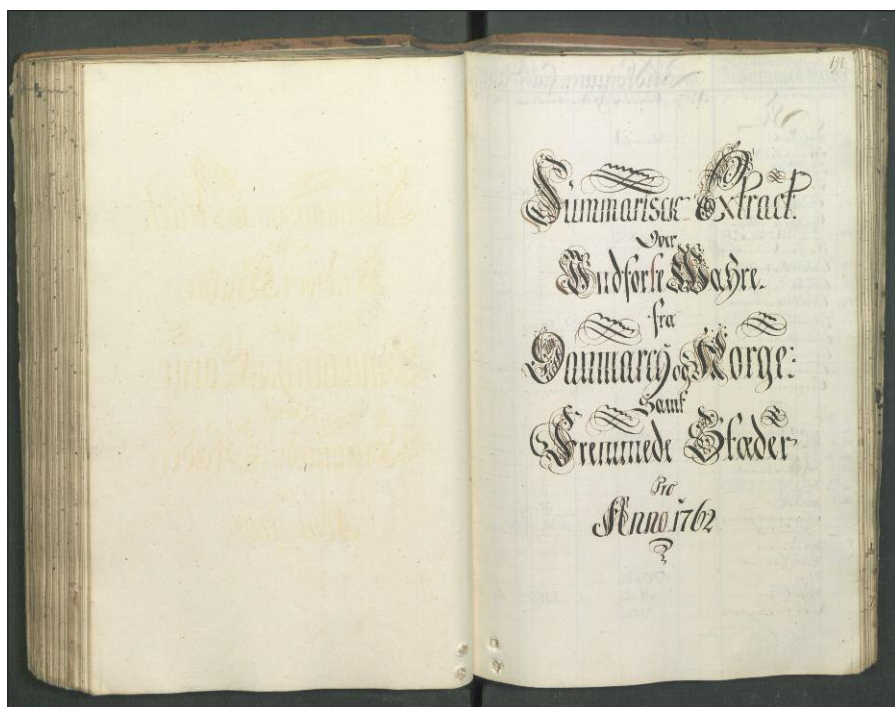 198
Summarisck Extract.
Over
Indførte Wahre.
fra
Danmarch og Norge:
Samt
Fremmede Stæder
Pro
Anno 1762